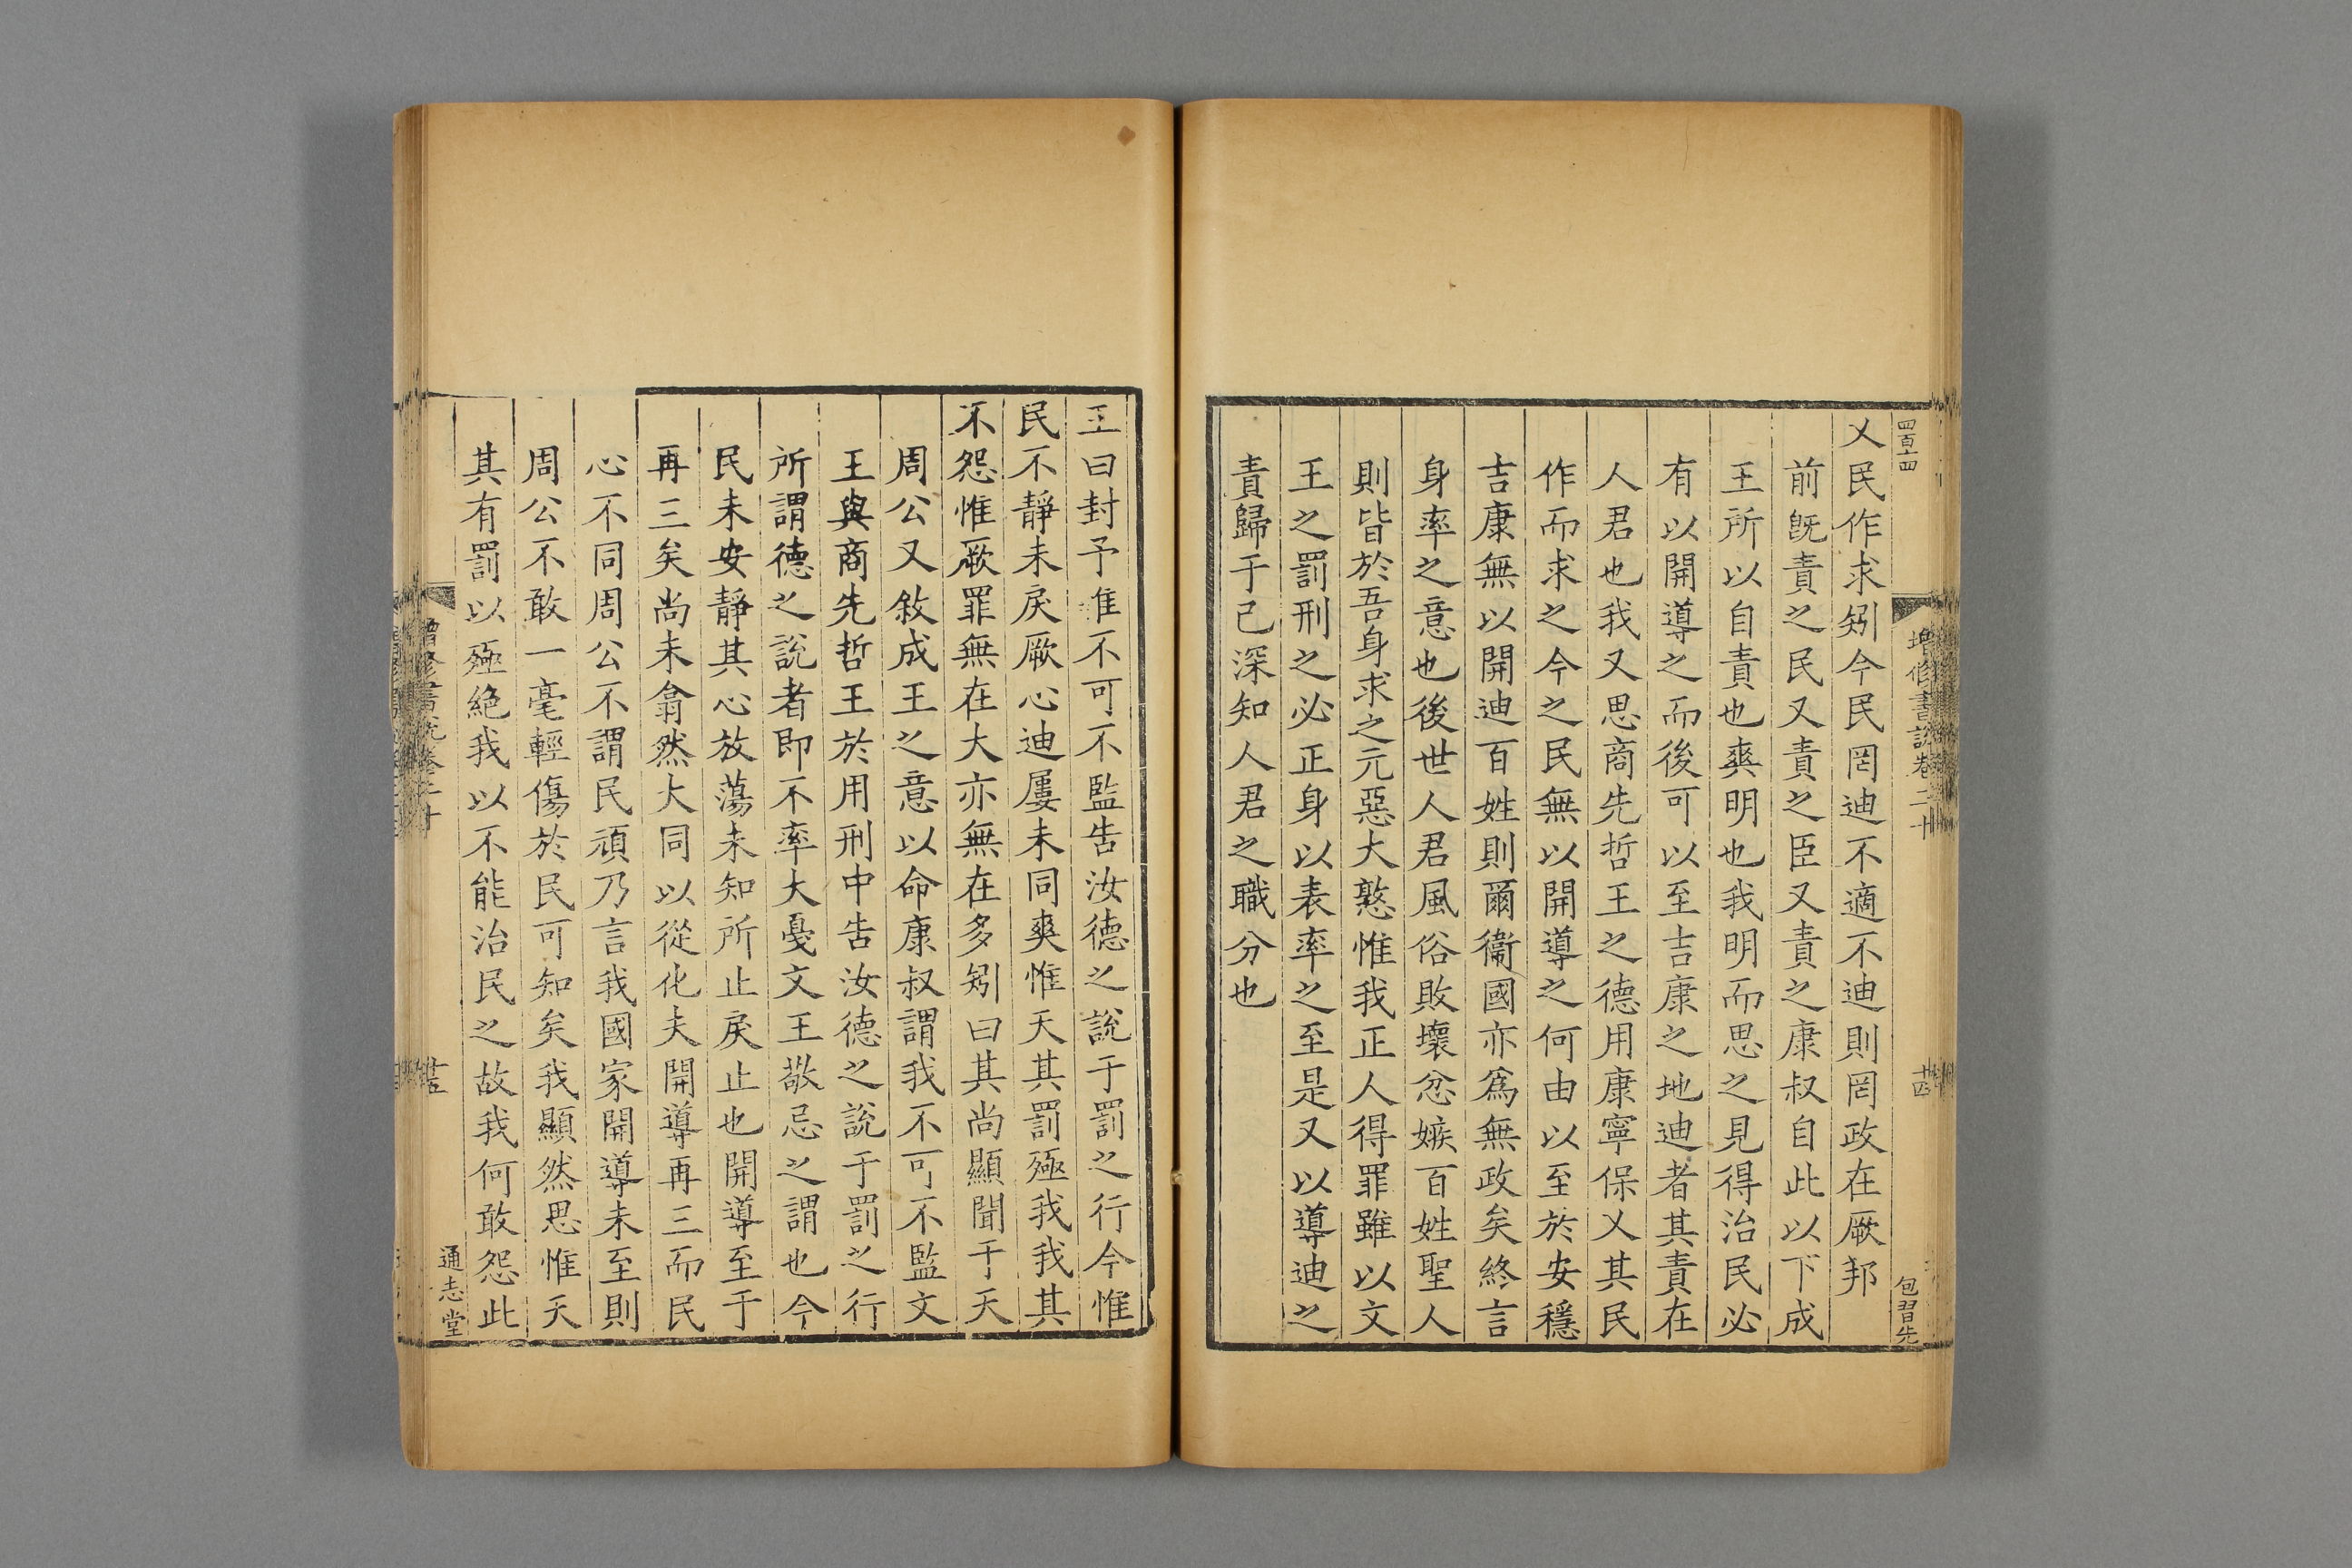 四百十四
增修書說卷二十
十四
包習先
乂民作求矧今民罔迪不適不迪則罔政在厥邦
前旣責之民又責之臣又責之康叔自此以下成
王所以自責也爽明也我明而思之見得治民必
有以開導之而後可以至吉康之地迪者其責在
人君也我又思商先哲王之德用康寧保乂其民
作而求之今之民無以開導之何由以至於安穩
吉康無以開迪百姓則爾衞國亦爲無政矣終言
身率之意也後世人君風俗敗壞忿嫉百姓聖人
則皆於吾身求之元惡大憝惟我正人得罪雖以文
王之罰刑之必正身以表率之至是又以導迪之
責歸于己深知人君之職分也
王曰封予惟不可不監告汝德之說于罰之行今惟
民不靜未戾厥心迪屢未同爽惟天其罰殛我我其
不怨惟厥罪無在大亦無在多矧曰其尚顯聞于天
周公又敘成王之意以命康叔謂我不可不監文
王與商先哲王於用刑中告汝德之說于罰之行
所謂德之說者即不率大戞文王敬忌之謂也今
民未安靜其心放蕩未知所止戾止也開導至于
再三矣尚未翕然大同以從化夫開導再三而民
心不同周公不謂民頑乃言我國家開導未至則
周公不敢一毫輕傷於民可知矣我顯然思惟天
其有罰以殛絶我以不能治民之故我何敢怨此
增修書說卷二十
十五
通志堂